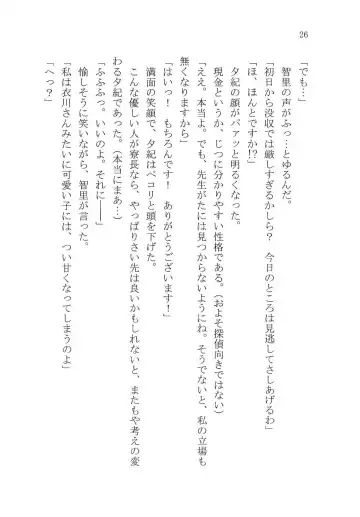 26
「でも…」
智里の声がふっ…とゆるんだ。
「初日から没収では厳しすぎるかしら？　今日のところは見逃してさしあげるわ」
「ほ、ほんとですか!?」
夕紀の顔がパァッと明るくなった。
現金というか、じつに分かりやすい性格である。（およそ探偵向きではない）
「ええ。本当よ。でも、先生がたには見つからないようにね。そうでないと、私の立場も
無くなりますから」
「はいっ！　もちろんです！　ありがとうございます！」
満面の笑顔で、夕紀はペコリと頭を下げた。
こんな優しい人が寮長なら、やっぱりさい先は良いかもしれないと、またもや考えの変
わる夕紀であった。（本当にまあ…）
「ふふふっ。いいのよ。それに――」
愉しそうに笑いながら、智里が言った。
「私は衣川さんみたいに可愛い子には、つい甘くなってしまうのよ」
「へっ？」